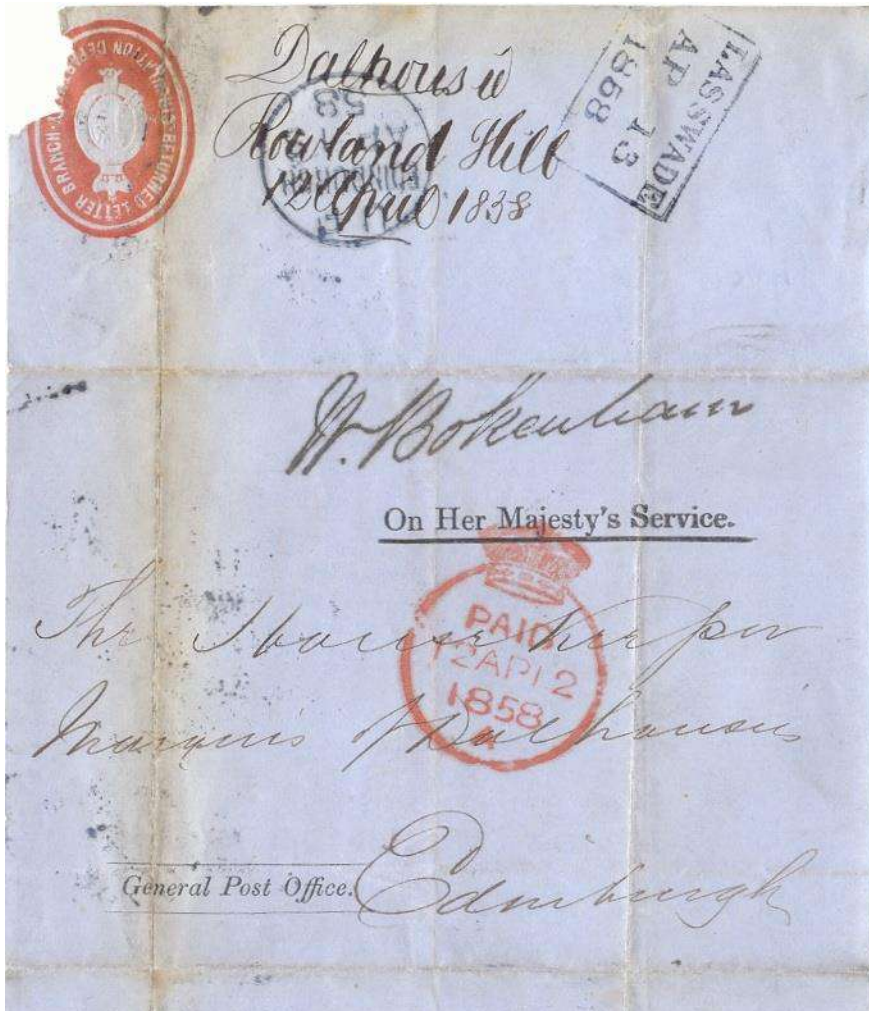 RETURNED LETTER BRANCH
Dalhousie
Rowland Hill
12 April 1858
EDINBURGH
AP
58
LASSWADE
AP 13
1858
W. Bokenham
On Her Majesty's Service.
PAID
12AP12
1858
The House Keeper
Marquis of Dalhousie
General Post Office.
Edinburgh